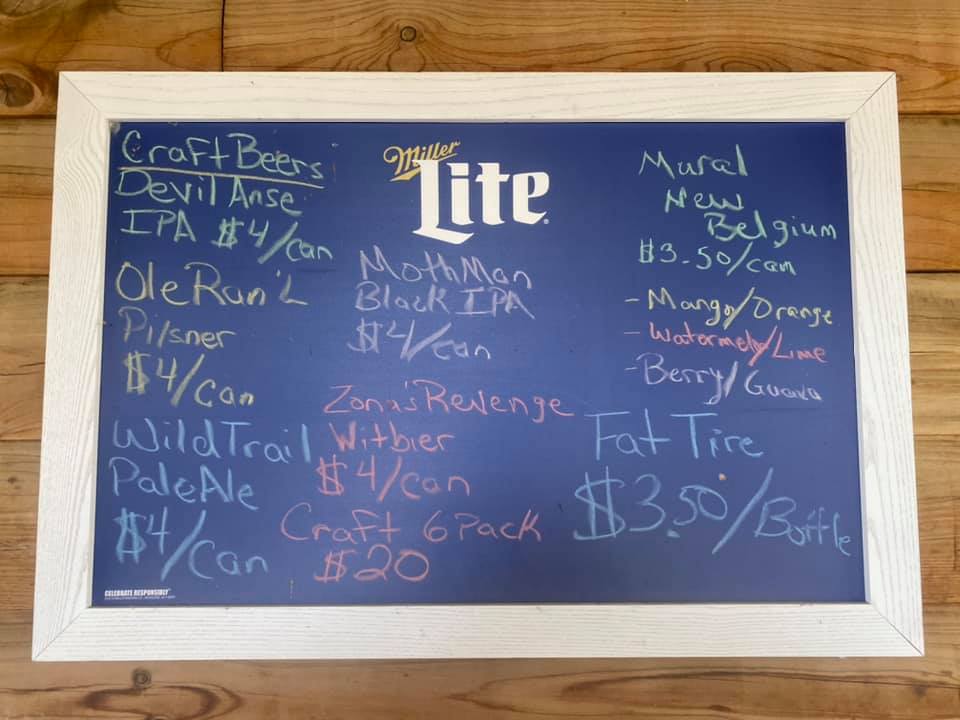 Craft Beers
Devil Anse
IPA $4/can
Ole Ran'L
Pilsner
$4/can
Wild Trail
Pale Ale
$4/can
Miller
Lite
MothMan
Black IPA
$4/can
Zona's Revenge
Witbier
$4/can
Craft 6 Pack
$20
Mural
New
Belgium
$3.50/can
- Mango/Orange
- Watermelon/Lime
- Berry/Guava
Fat Tire
$3.50/Bottle
CELEBRATE RESPONSIBLY